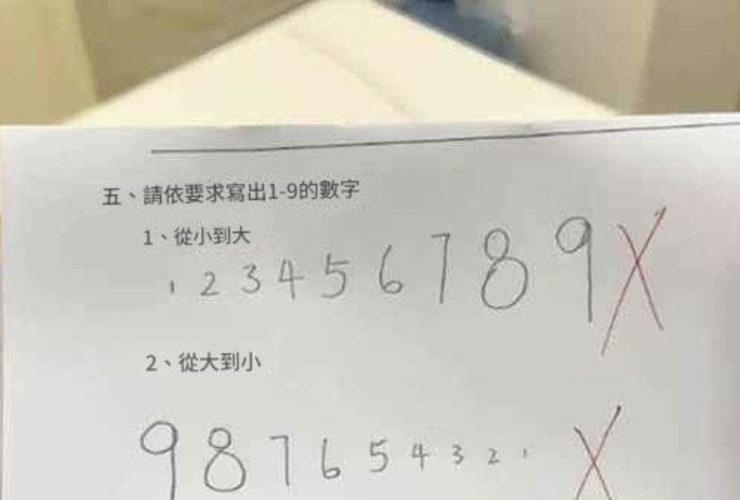 五、請依要求寫出1-9的數字
1、從小到大
1 2 3 4 5 6 7 8 9 X
2、從大到小
9 8 7 6 5 4 3 2 1 X